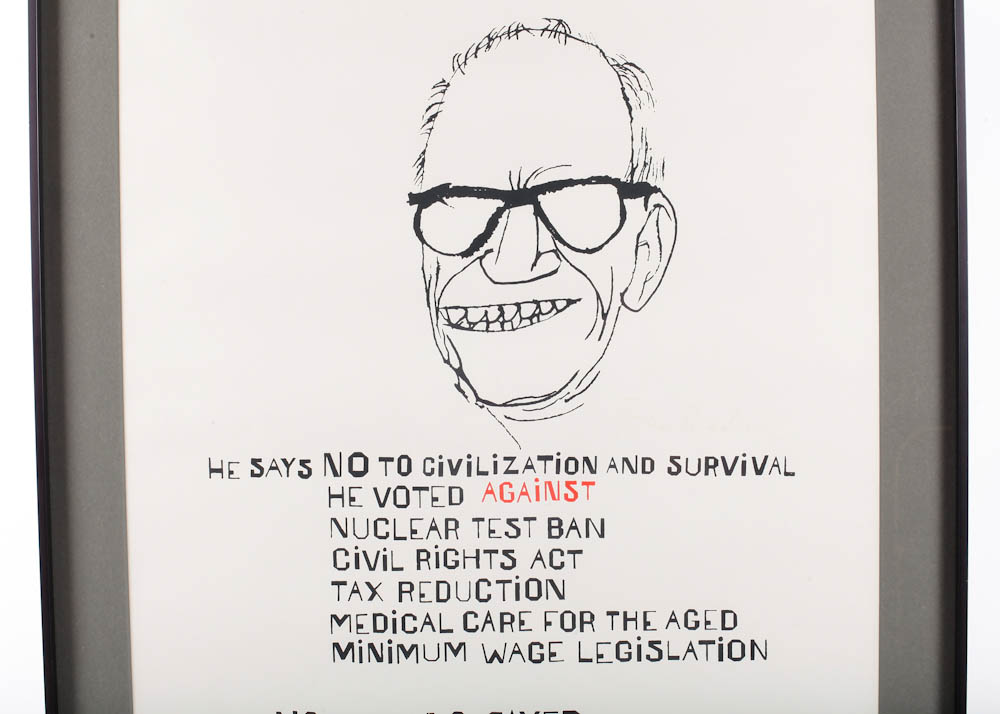 HE SAYS NO TO CIVILIZATION AND SURVIVAL
HE VOTED AGAINST
NUCLEAR TEST BAN
CIVIL RIGHTS ACT
TAX REDUCTION
MEDICAL CARE FOR THE AGED
MINIMUM WAGE LEGISLATION